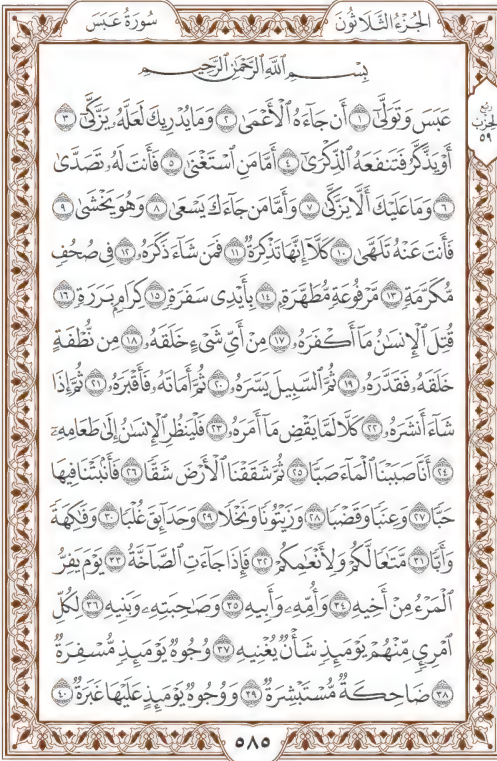 سُورَةُ عَبَسَ
الجُزْءُ الثَّلَاثُونَ
بِسْمِ ٱللَّهِ ٱلرَّحْمَٰنِ ٱلرَّحِيمِ
رُبْع
الحِزْب
٥٩
عَبَسَ وَتَوَلَّىٰٓ ١ أَن جَآءَهُ ٱلْأَعْمَىٰ ٢ وَمَا يُدْرِيكَ لَعَلَّهُۥ يَزَّكَّىٰٓ ٣
أَوْ يَذَّكَّرُ فَتَنفَعَهُ ٱلذِّكْرَىٰٓ ٤ أَمَّا مَنِ ٱسْتَغْنَىٰ ٥ فَأَنتَ لَهُۥ تَصَدَّىٰ
٦ وَمَا عَلَيْكَ أَلَّا يَزَّكَّىٰ ٧ وَأَمَّا مَن جَآءَكَ يَسْعَىٰ ٨ وَهُوَ يَخْشَىٰ ٩
فَأَنتَ عَنْهُ تَلَهَّىٰ ١٠ كَلَّآ إِنَّهَا تَذْكِرَةٌ ١١ فَمَن شَآءَ ذَكَرَهُۥ ١٢ فِى صُحُفٍ
مُّكَرَّمَةٍ ١٣ مَّرْفُوعَةٍ مُّطَهَّرَةٍۭ ١٤ بِأَيْدِى سَفَرَةٍ ١٥ كِرَامٍۭ بَرَرَةٍ ١٦
قُتِلَ ٱلْإِنسَٰنُ مَآ أَكْفَرَهُۥ ١٧ مِنْ أَىِّ شَىْءٍ خَلَقَهُۥ ١٨ مِن نُّطْفَةٍ
خَلَقَهُۥ فَقَدَّرَهُۥ ١٩ ثُمَّ ٱلسَّبِيلَ يَسَّرَهُۥ ٢٠ ثُمَّ أَمَاتَهُۥ فَأَقْبَرَهُۥ ٢١ ثُمَّ إِذَا
شَآءَ أَنشَرَهُۥ ٢٢ كَلَّا لَمَّا يَقْضِ مَآ أَمَرَهُۥ ٢٣ فَلْيَنظُرِ ٱلْإِنسَٰنُ إِلَىٰ طَعَامِهِۦٓ
٢٤ أَنَّا صَبَبْنَا ٱلْمَآءَ صَبًّا ٢٥ ثُمَّ شَقَقْنَا ٱلْأَرْضَ شَقًّا ٢٦ فَأَنۢبَتْنَا فِيهَا
حَبًّا ٢٧ وَعِنَبًا وَقَضْبًا ٢٨ وَزَيْتُونًا وَنَخْلًا ٢٩ وَحَدَآئِقَ غُلْبًا ٣٠ وَفَٰكِهَةً
وَأَبًّا ٣١ مَّتَٰعًا لَّكُمْ وَلِأَنْعَٰمِكُمْ ٣٢ فَإِذَا جَآءَتِ ٱلصَّآخَّةُ ٣٣ يَوْمَ يَفِرُّ
ٱلْمَرْءُ مِنْ أَخِيهِ ٣٤ وَأُمِّهِۦ وَأَبِيهِ ٣٥ وَصَٰحِبَتِهِۦ وَبَنِيهِ ٣٦ لِكُلِّ
ٱمْرِئٍ مِّنْهُمْ يَوْمَئِذٍ شَأْنٌ يُغْنِيهِ ٣٧ وُجُوهٌ يَوْمَئِذٍ مُّسْفِرَةٌ
٣٨ ضَاحِكَةٌ مُّسْتَبْشِرَةٌ ٣٩ وَوُجُوهٌ يَوْمَئِذٍ عَلَيْهَا غَبَرَةٌ ٤٠
٥٨٥